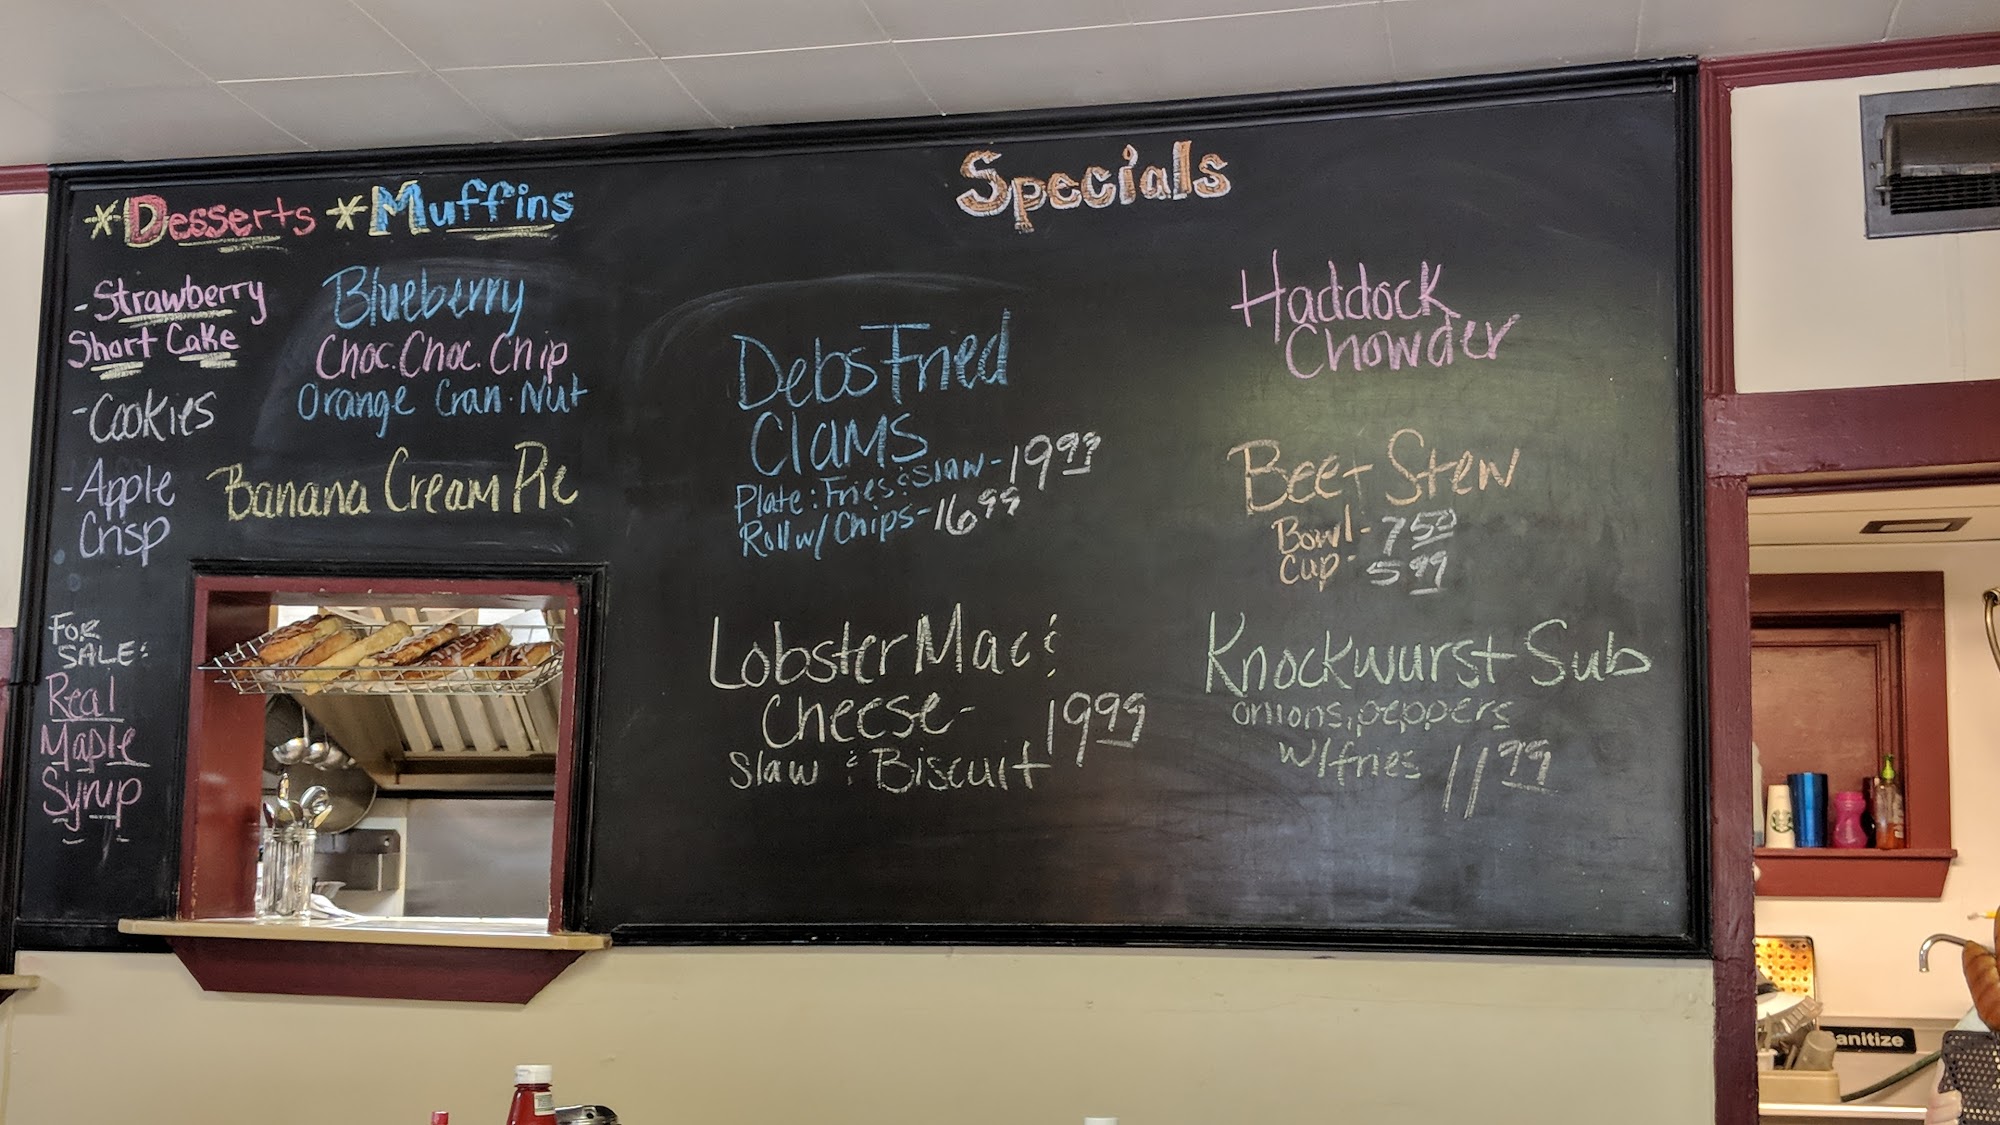 *Desserts *Muffins
- Strawberry
Short Cake
- Cookies
- Apple
Crisp
Blueberry
Choc. Choc. Chip
Orange Cran. Nut
Banana Cream Pie
FOR
SALE:
Real
Maple
Syrup
Specials
Debs Fried
Clams
Plate: Fries & Slaw - 19.99
Roll w/ Chips - 16.99
Lobster Mac &
Cheese - 19.99
Slaw & Biscuit
Haddock
Chowder
Beef Stew
Bowl - 7.50
Cup - 5.99
Knockwurst Sub
onions, peppers
w/fries 11.99
anitize